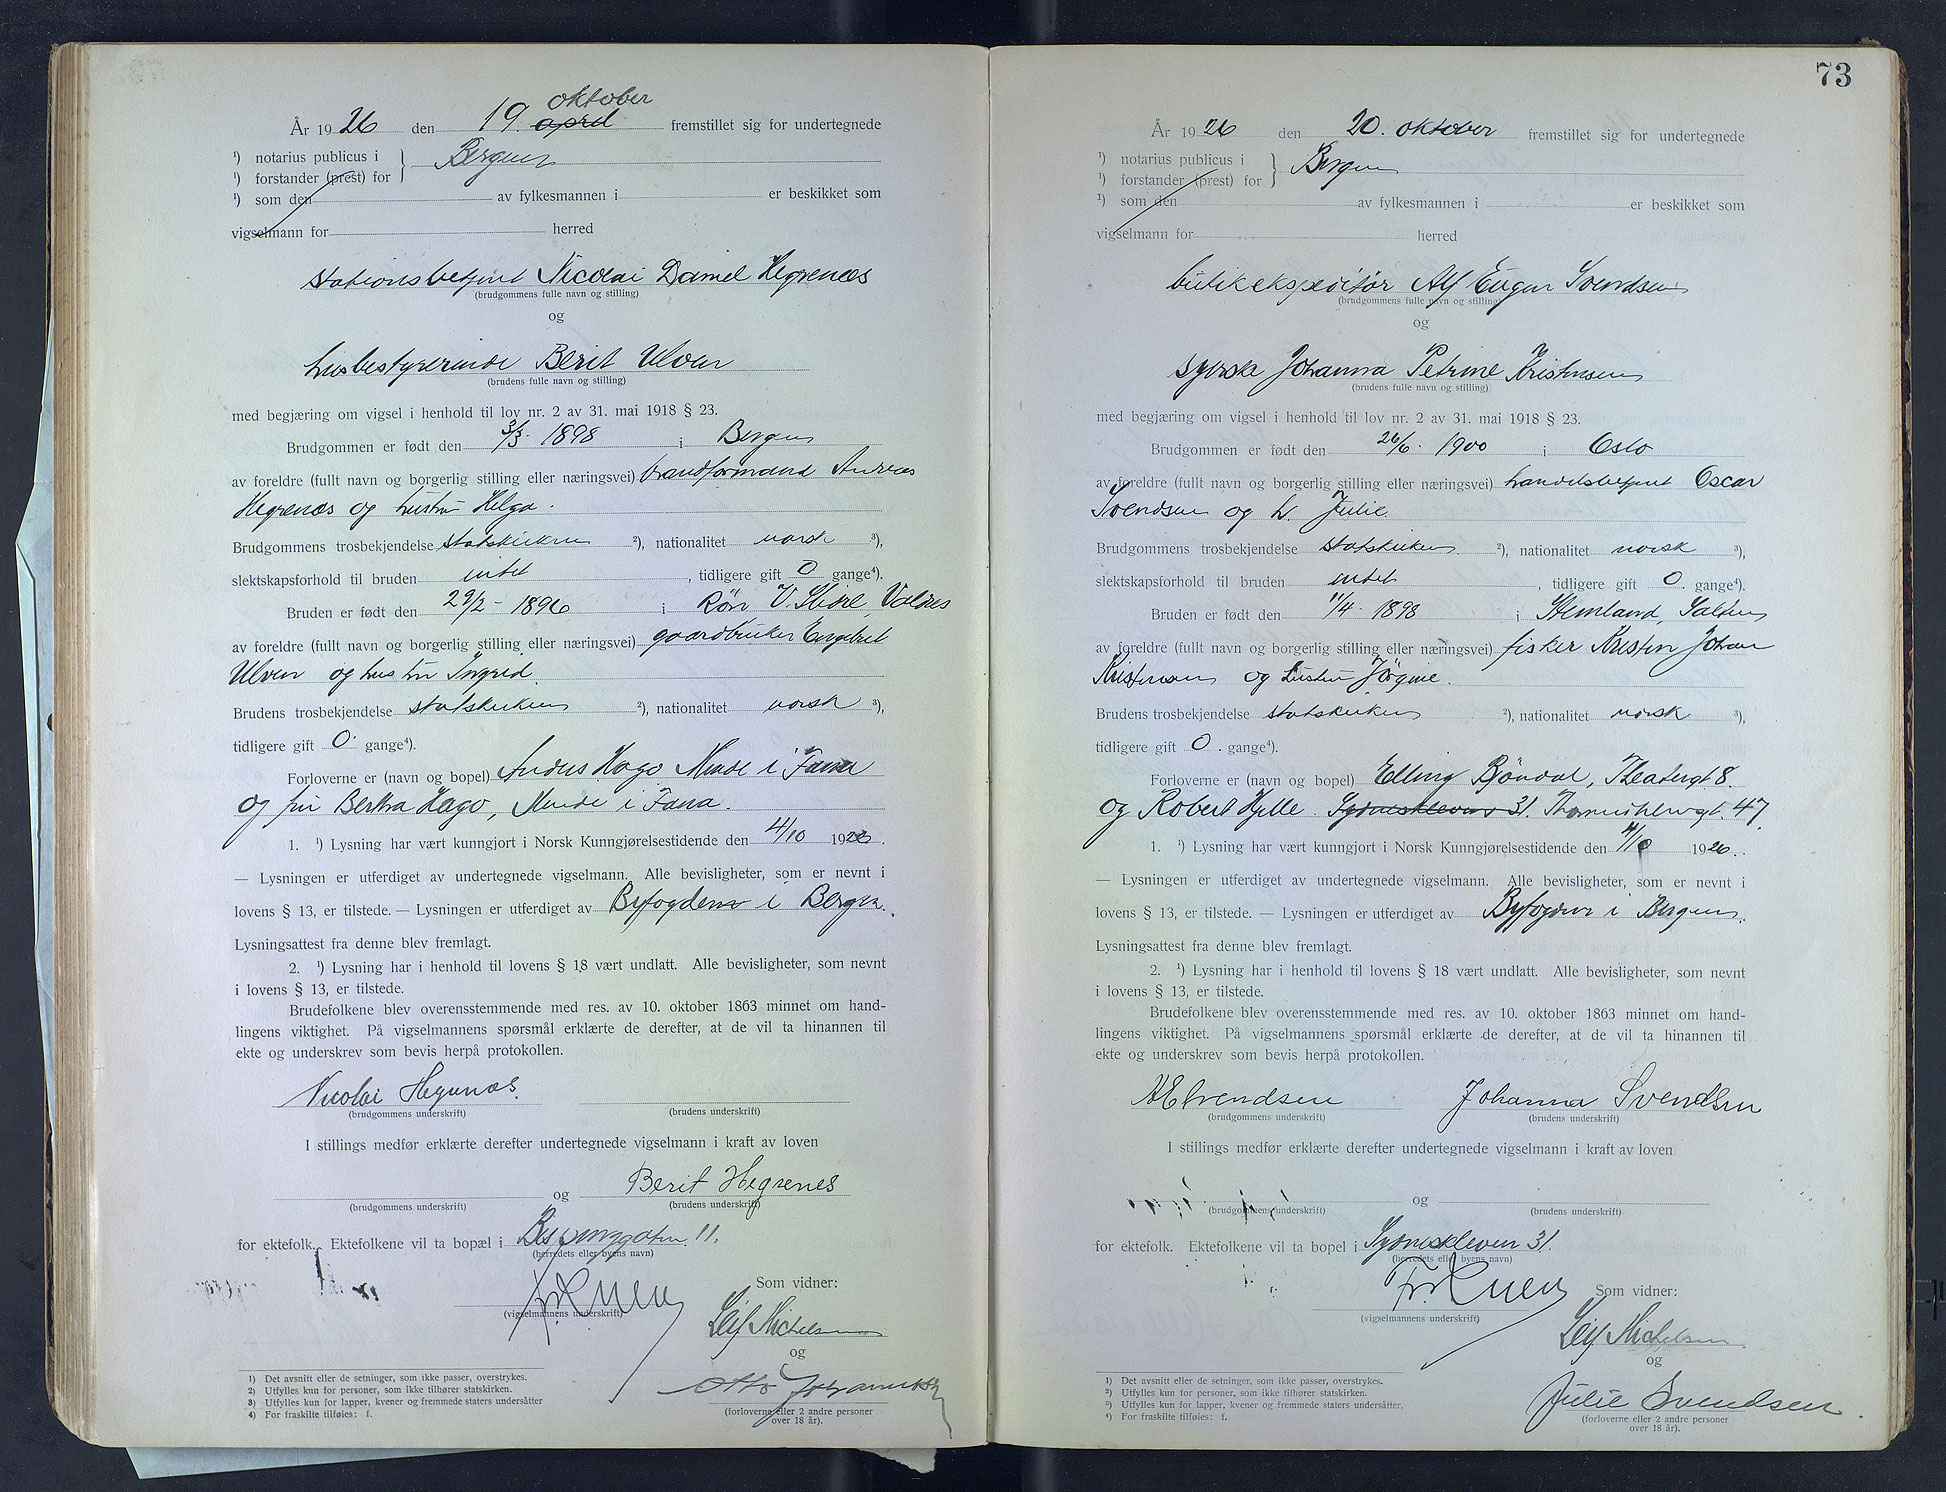 oktober
År 1926 den 19. april fremstillet sig for undertegnede
¹) notarius publicus i } Bergen
¹) forstander (prest) for
¹) som den av fylkesmannen i er beskikket som
vigselmann for herred
stationsbetjent Nicolai Daniel Hegrenæs
(brudgommens fulle navn og stilling)
og
husbestyrerinde Berit Ulven
(brudens fulle navn og stilling)
med begjæring om vigsel i henhold til lov nr. 2 av 31. mai 1918 § 23.
Brudgommen er født den 3/3 - 1898 i Bergen
av foreldre (fullt navn og borgerlig stilling eller næringsvei) brandformand Andreas
Hegrenæs og hustru Helga.
Brudgommens trosbekjendelse statskirken ²), nationalitet norsk ³),
slektskapsforhold til bruden intet, tidligere gift 0 gange⁴).
Bruden er født den 29/2 - 1896 i Røn V. Slidre, Valdres
av foreldre (fullt navn og borgerlig stilling eller næringsvei) gaardbruker Engebret
Ulven og hustru Ingrid.
Brudens trosbekjendelse statskirken ²), nationalitet norsk ³),
tidligere gift 0 gange⁴).
Forloverne er (navn og bopel) Hago Minde i Fana
og fru Bertha Hago, Minde i Fana.
1. ¹) Lysning har vært kunngjort i Norsk Kunngjørelsestidende den 4/10 1926.
— Lysningen er utferdiget av undertegnede vigselmann. Alle bevisligheter, som er nevnt i
lovens § 13, er tilstede. — Lysningen er utferdiget av Byfogden i Bergen.
Lysningsattest fra denne blev fremlagt.
2. ¹) Lysning har i henhold til lovens § 18 vært undlatt. Alle bevisligheter, som nevnt
i lovens § 13, er tilstede.
Brudefolkene blev overensstemmende med res. av 10. oktober 1863 minnet om hand-
lingens viktighet. På vigselmannens spørsmål erklærte de derefter, at de vil ta hinannen til
ekte og underskrev som bevis herpå protokollen.
Nicolai Hegrenæs.
(brudgommens underskrift) (brudens underskrift)
I stillings medfør erklærte derefter undertegnede vigselmann i kraft av loven
og Berit Hegrenes
(brudgommens underskrift) (brudens underskrift)
for ektefolk. Ektefolkene vil ta bopæl i Bispenggaten 11.
(herredets eller byens navn)
Som vidner:
(vigselmannens underskrift)
Leif Michelsen
og
Otto Johannessen
(forloverne eller 2 andre personer
over 18 år).
1) Det avsnitt eller de setninger, som ikke passer, overstrykes.
2) Utfylles kun for personer, som ikke tilhører statskirken.
3) Utfylles kun for lapper, kvener og fremmede staters undersåtter
4) For fraskilte tilføies: f.
73
År 1926 den 20. oktober fremstillet sig for undertegnede
¹) notarius publicus i } Bergen
¹) forstander (prest) for
¹) som den av fylkesmannen i er beskikket som
vigselmann for herred
butikekspeditør Alf Eugen Svendsen
(brudgommens fulle navn og stilling)
og
syerske Johanna Petrine Kristensen
(brudens fulle navn og stilling)
med begjæring om vigsel i henhold til lov nr. 2 av 31. mai 1918 § 23.
Brudgommen er født den 26/6 - 1900 i Oslo
av foreldre (fullt navn og borgerlig stilling eller næringsvei) handelsbetjent Oscar
Svendsen og h. Julie
Brudgommens trosbekjendelse statskirken ²), nationalitet norsk ³),
slektskapsforhold til bruden intet, tidligere gift 0. gange⁴).
Bruden er født den 11/4 - 1898 i Hemland, Salten
av foreldre (fullt navn og borgerlig stilling eller næringsvei) fisker Kristen Johan
Kristensen og hustru Jörgine.
Brudens trosbekjendelse statskirken ²), nationalitet norsk ³),
tidligere gift 0. gange⁴).
Forloverne er (navn og bopel) Elling Bjöndal, Theatergt 8.
og Robert Hylle. Sydneskleven 31. Thormühlensgt. 47
1. ¹) Lysning har vært kunngjort i Norsk Kunngjørelsestidende den 4/10 1926.
— Lysningen er utferdiget av undertegnede vigselmann. Alle bevisligheter, som er nevnt i
lovens § 13, er tilstede. — Lysningen er utferdiget av Byfogden i Bergen.
Lysningsattest fra denne blev fremlagt.
2. ¹) Lysning har i henhold til lovens § 18 vært undlatt. Alle bevisligheter, som nevnt
i lovens § 13, er tilstede.
Brudefolkene blev overensstemmende med res. av 10. oktober 1863 minnet om hand-
lingens viktighet. På vigselmannens spørsmål erklærte de derefter, at de vil ta hinannen til
ekte og underskrev som bevis herpå protokollen.
AESvendsen Johanna Svendsen
(brudgommens underskrift) (brudens underskrift)
I stillings medfør erklærte derefter undertegnede vigselmann i kraft av loven
og
(brudgommens underskrift) (brudens underskrift)
for ektefolk. Ektefolkene vil ta bopel i Sydneskleven 31.
(herredets eller byens navn)
Som vidner:
(vigselmannens underskrift)
Leif Michelsen
og
Julie Svendsen
(forloverne eller 2 andre personer
over 18 år).
¹) Det avsnitt eller de setninger, som ikke passer, overstrykes.
²) Utfylles kun for personer, som ikke tilhører statskirken.
³) Utfylles kun for lapper, kvener og fremmede staters undersåtter.
⁴) For fraskilte tilføies: f.